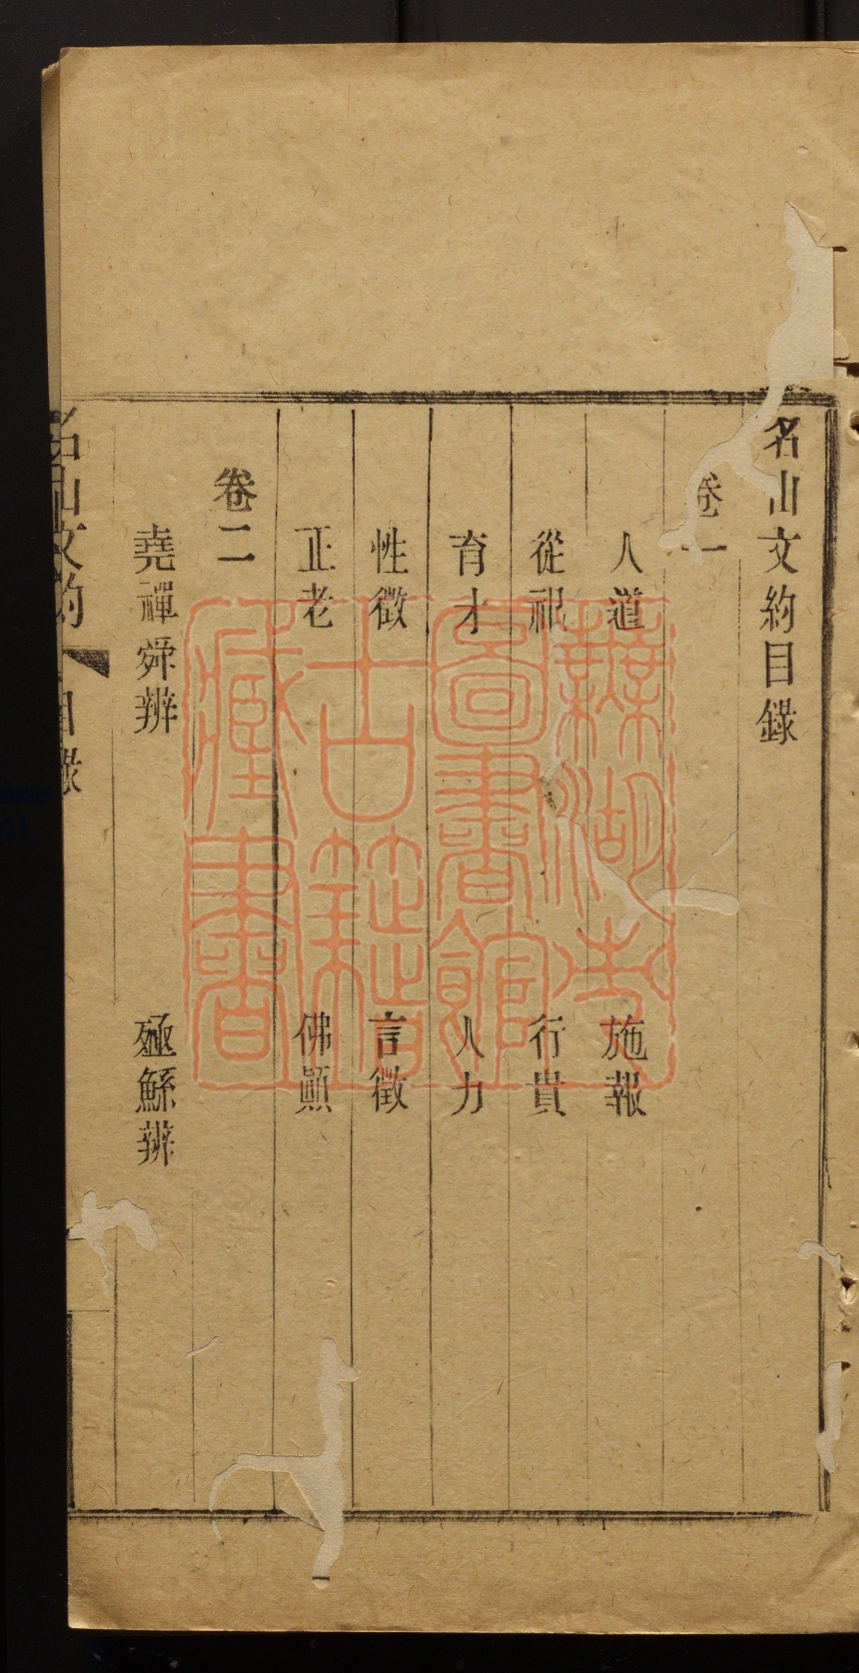 名山文約目錄
卷一
人道　施報
從祀　行貴
育才　人力
性徵　言徵
正老　佛願
卷二
堯禪舜辨　殛鯀辨
名山文約　目錄
蕪湖市
圖書館
古籍
藏書